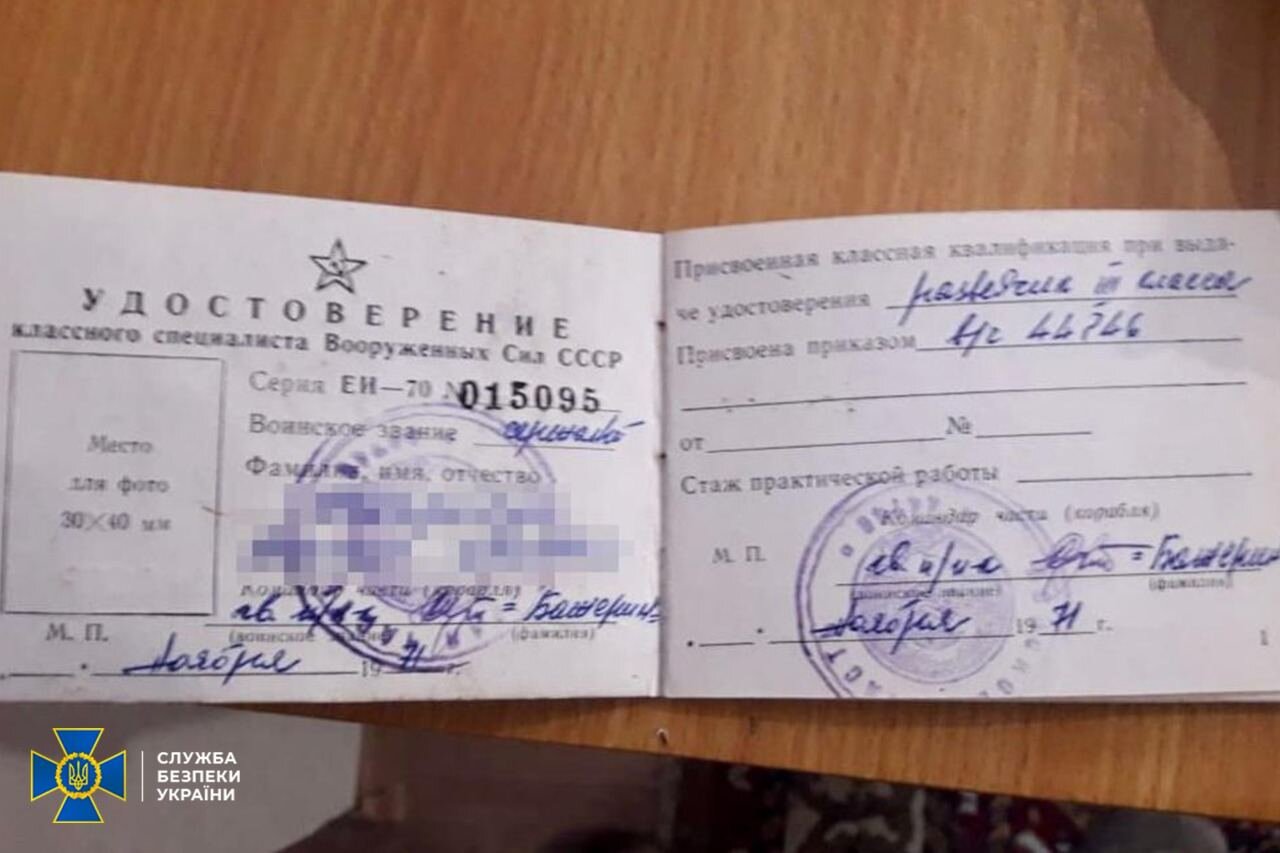 УДОСТОВЕРЕНИЕ
классного специалиста Вооруженных Сил СССР
Место
для фото
30×40 мм
Серия ЕИ—70 № 015095
Воинское звание
Фамилия, имя, отчество
Командир части (корабля)
= Бажерин
(воинское звание) (фамилия)
М. П.
Ноября 1971 г.
Присвоенная классная квалификация при выда-
че удостоверения разведчик III класса
Присвоена приказом в/ч 44746
от №
Стаж практической работы
Командир части (корабля)
М. П.
= Бажерин
(воинское звание) (фамилия)
Ноября 1971 г.
1
СЛУЖБА
БЕЗПЕКИ
УКРАЇНИ